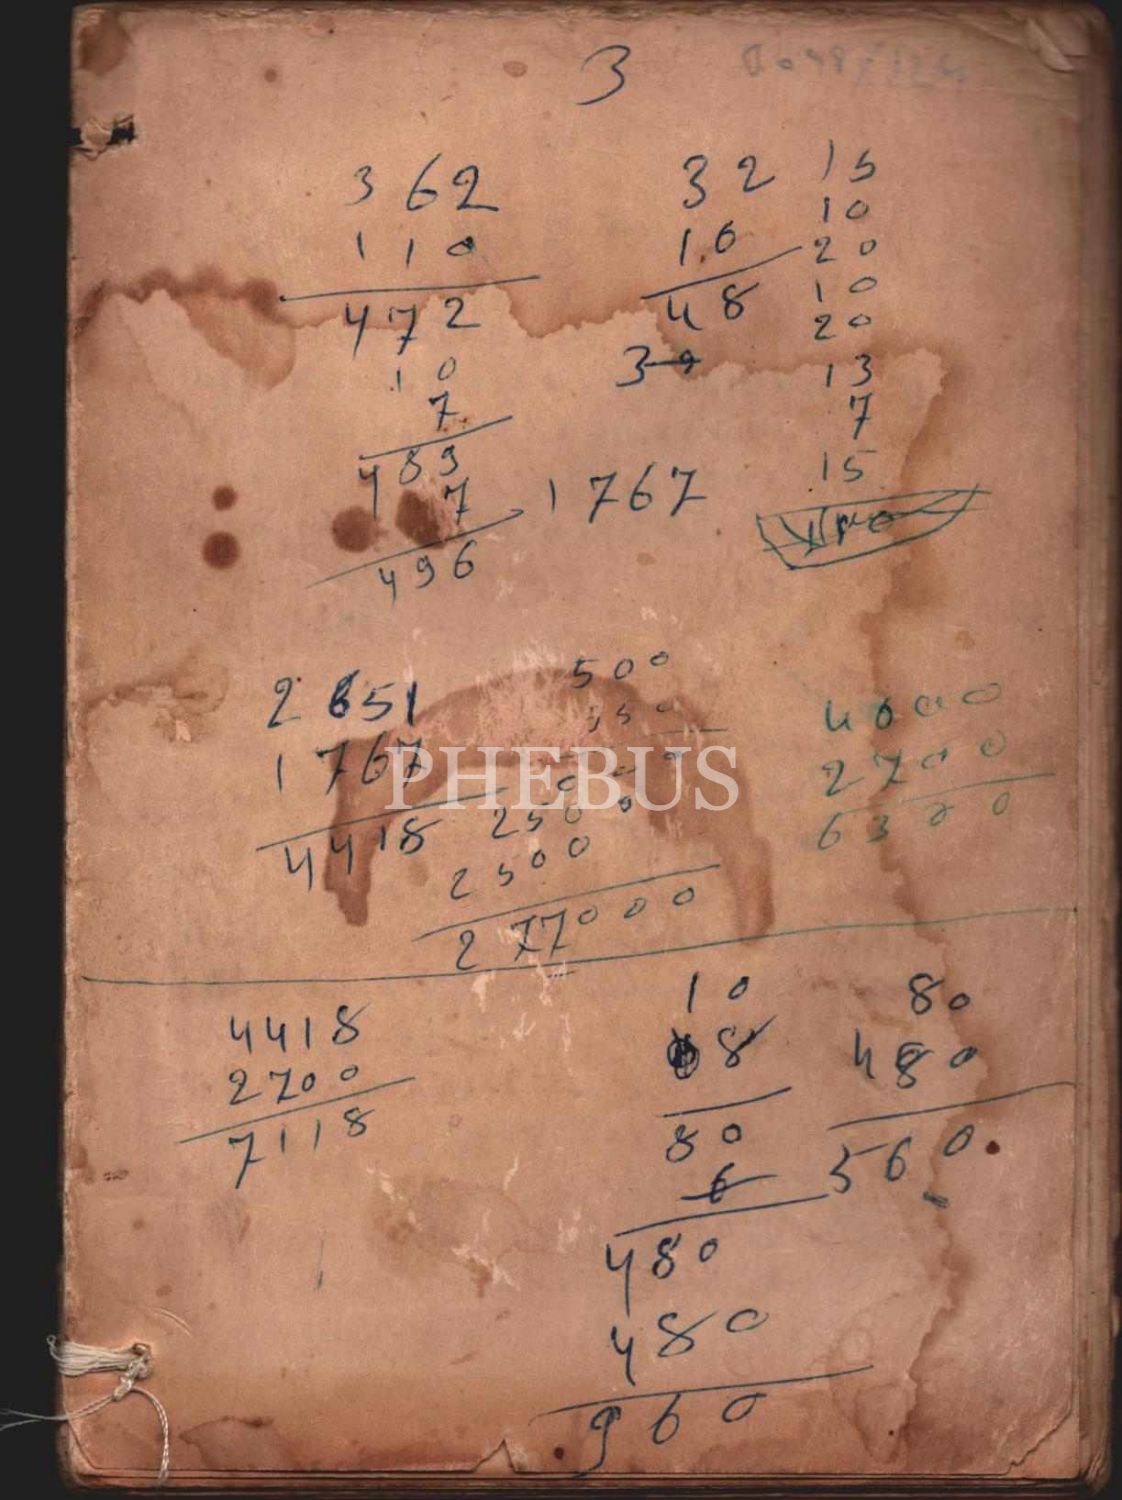 3
362
110
472
10
7
489
7
496
32
16
48
39
15
10
20
10
20
13
7
15
1767
2651
1767
4418
500
2500
2500
277000
4600
2700
6300
PHEBUS
4418
2700
7118
10
8
80
6
480
480
960
80
480
560